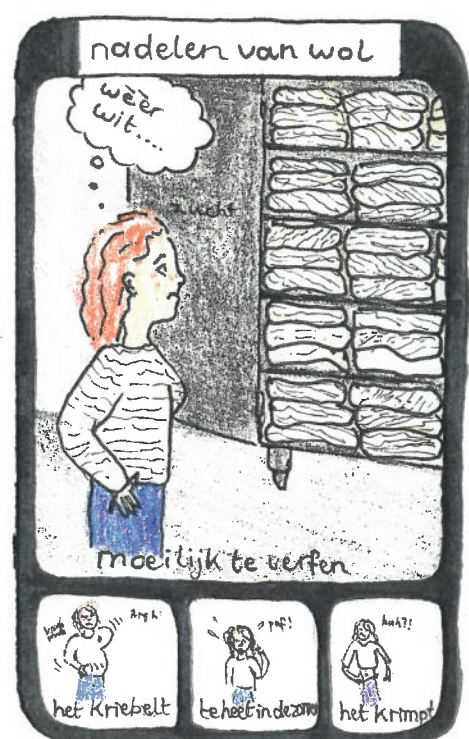 nadelen van wol
wèèr
wit....
zucht
moeilijk te verfen
Argh!
pof!
huh?!
het kriebelt
te heet in de zomer
het krimpt